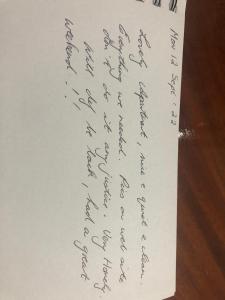 Mon 12 Sept : 22
Lovely apartment, nice & quiet & clean.
Everything we needed. Pics on web site
don't do it any justice. Very Homely.
Will def be back, had a great
weekend !!